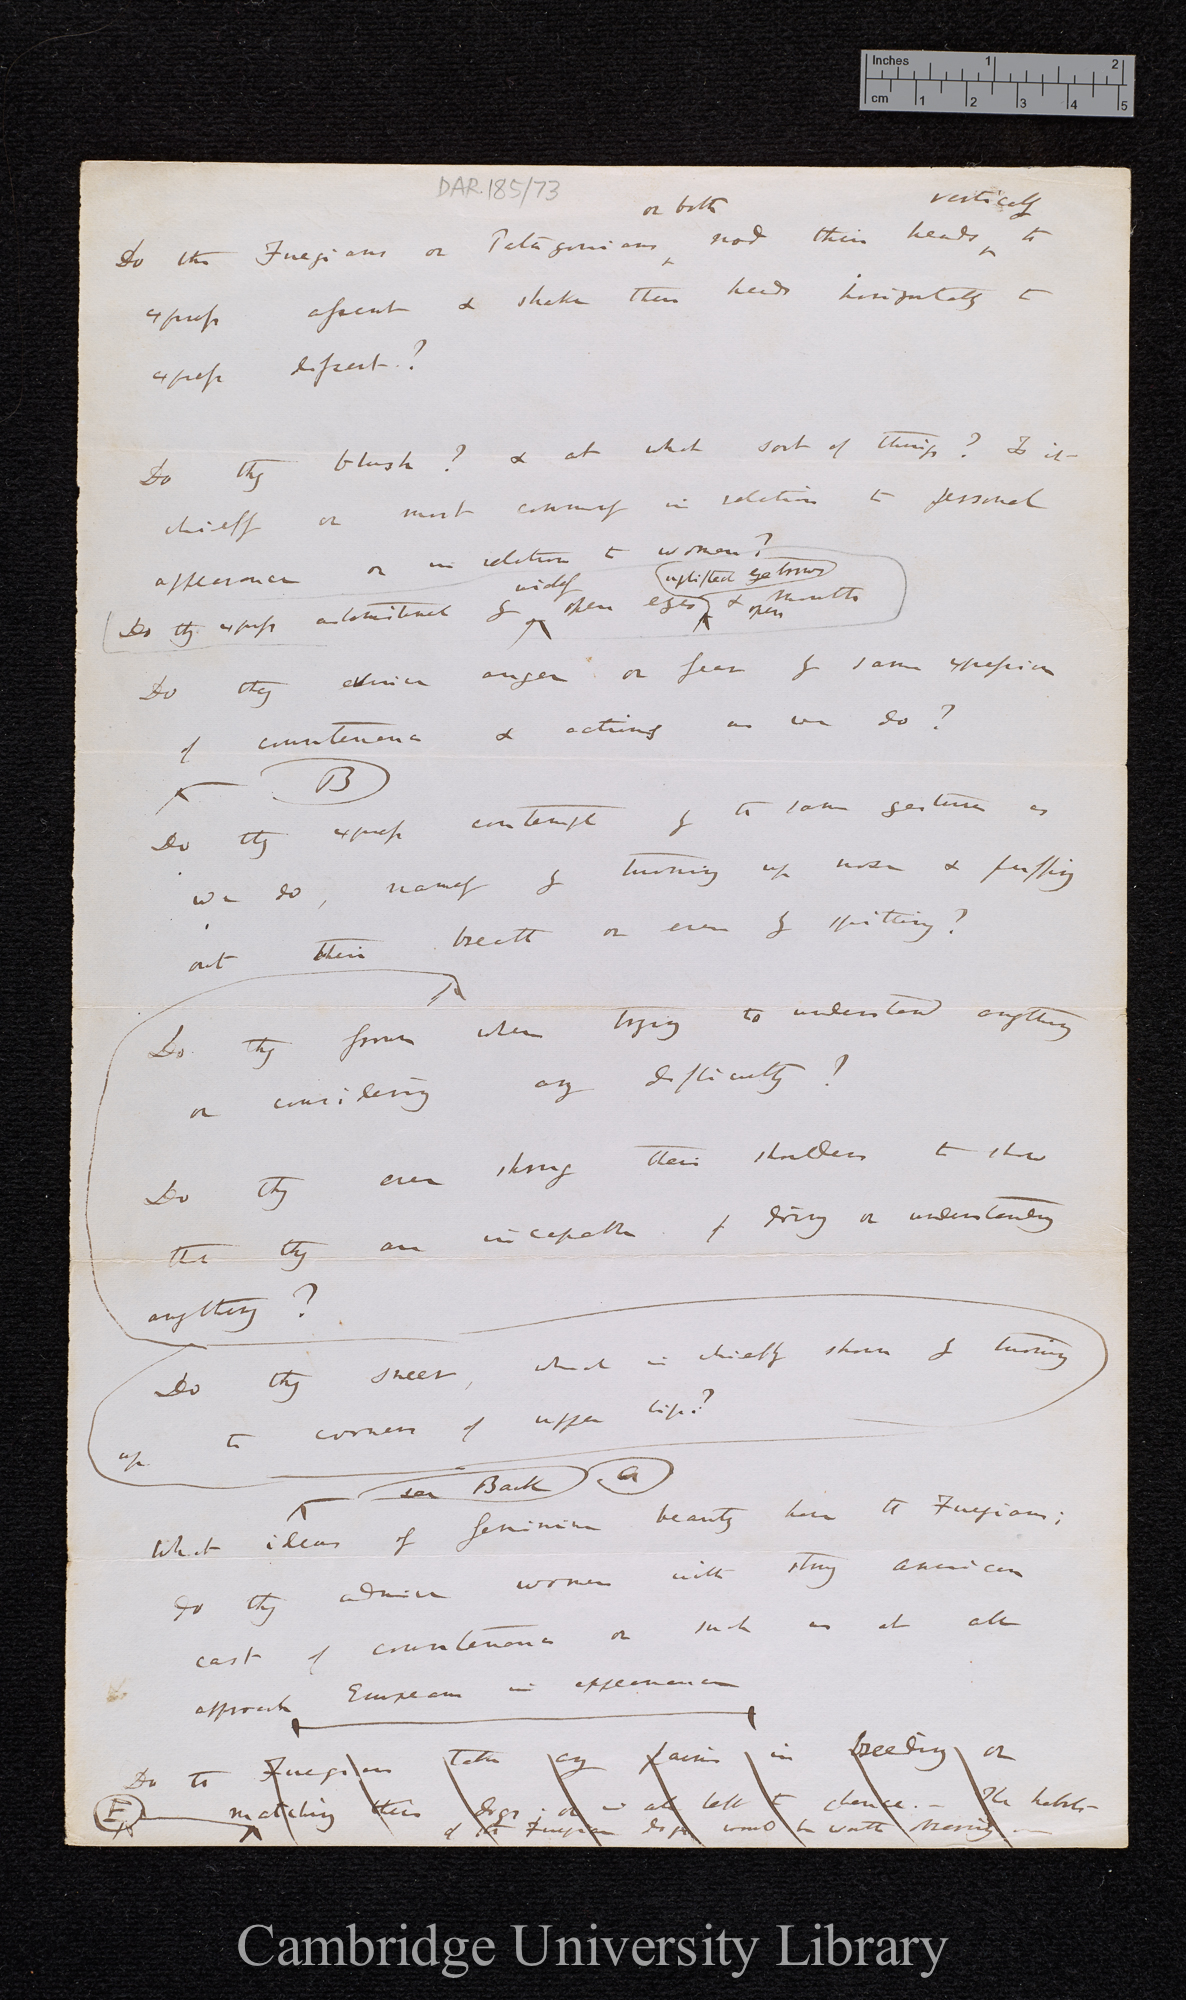 Inches 1 2
cm 1 2 3 4 5
DAR.185/73
or both vertically
Do the Fuegians or Patagonians nod their heads to
express assent & shake their heads horizontally to
express dissent.?
Do they blush? & at what sort of things? Is it
chiefly or most commonly in relation to personal
appearance or in relation to women?
widely uplifted eyebrows
Do they express astonishment by open eyes & open mouths
Do they evince anger or fear by same expression
of countenance & actions as we do?
B
Do they express contempt by the same gestures as
we do, namely by turning up nose & puffing
out their breath or even by spitting?
Do they frown when trying to understand anything
or considering any difficulty?
Do they ever shrug their shoulders to show
that they are incapable of doing or understanding
anything?
Do they sneer, which is chiefly shown by turning
up the corners of upper lip?
see Back a
What ideas of feminine beauty have the Fuegians;
do they admire women with strong American
cast of countenance or such as at all
approach Europeans in appearance
Do the Fuegians take any pains in breeding or
E matching their dogs; or is all left to chance.— The habits
of the Fuegian dogs would be worth observing.—
Cambridge University Library